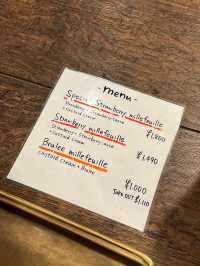 - menu -
Special Strawberry millefeuille
Strawberry + Strawberry sauce
+ Custard cream
¥1,800
Strawberry millefeuille
Strawberry + Strawberry sauce
+ Custard cream
¥1,490
Brulee millefeuille
Custard cream +
¥1,000
TAKE OUT ¥1,110